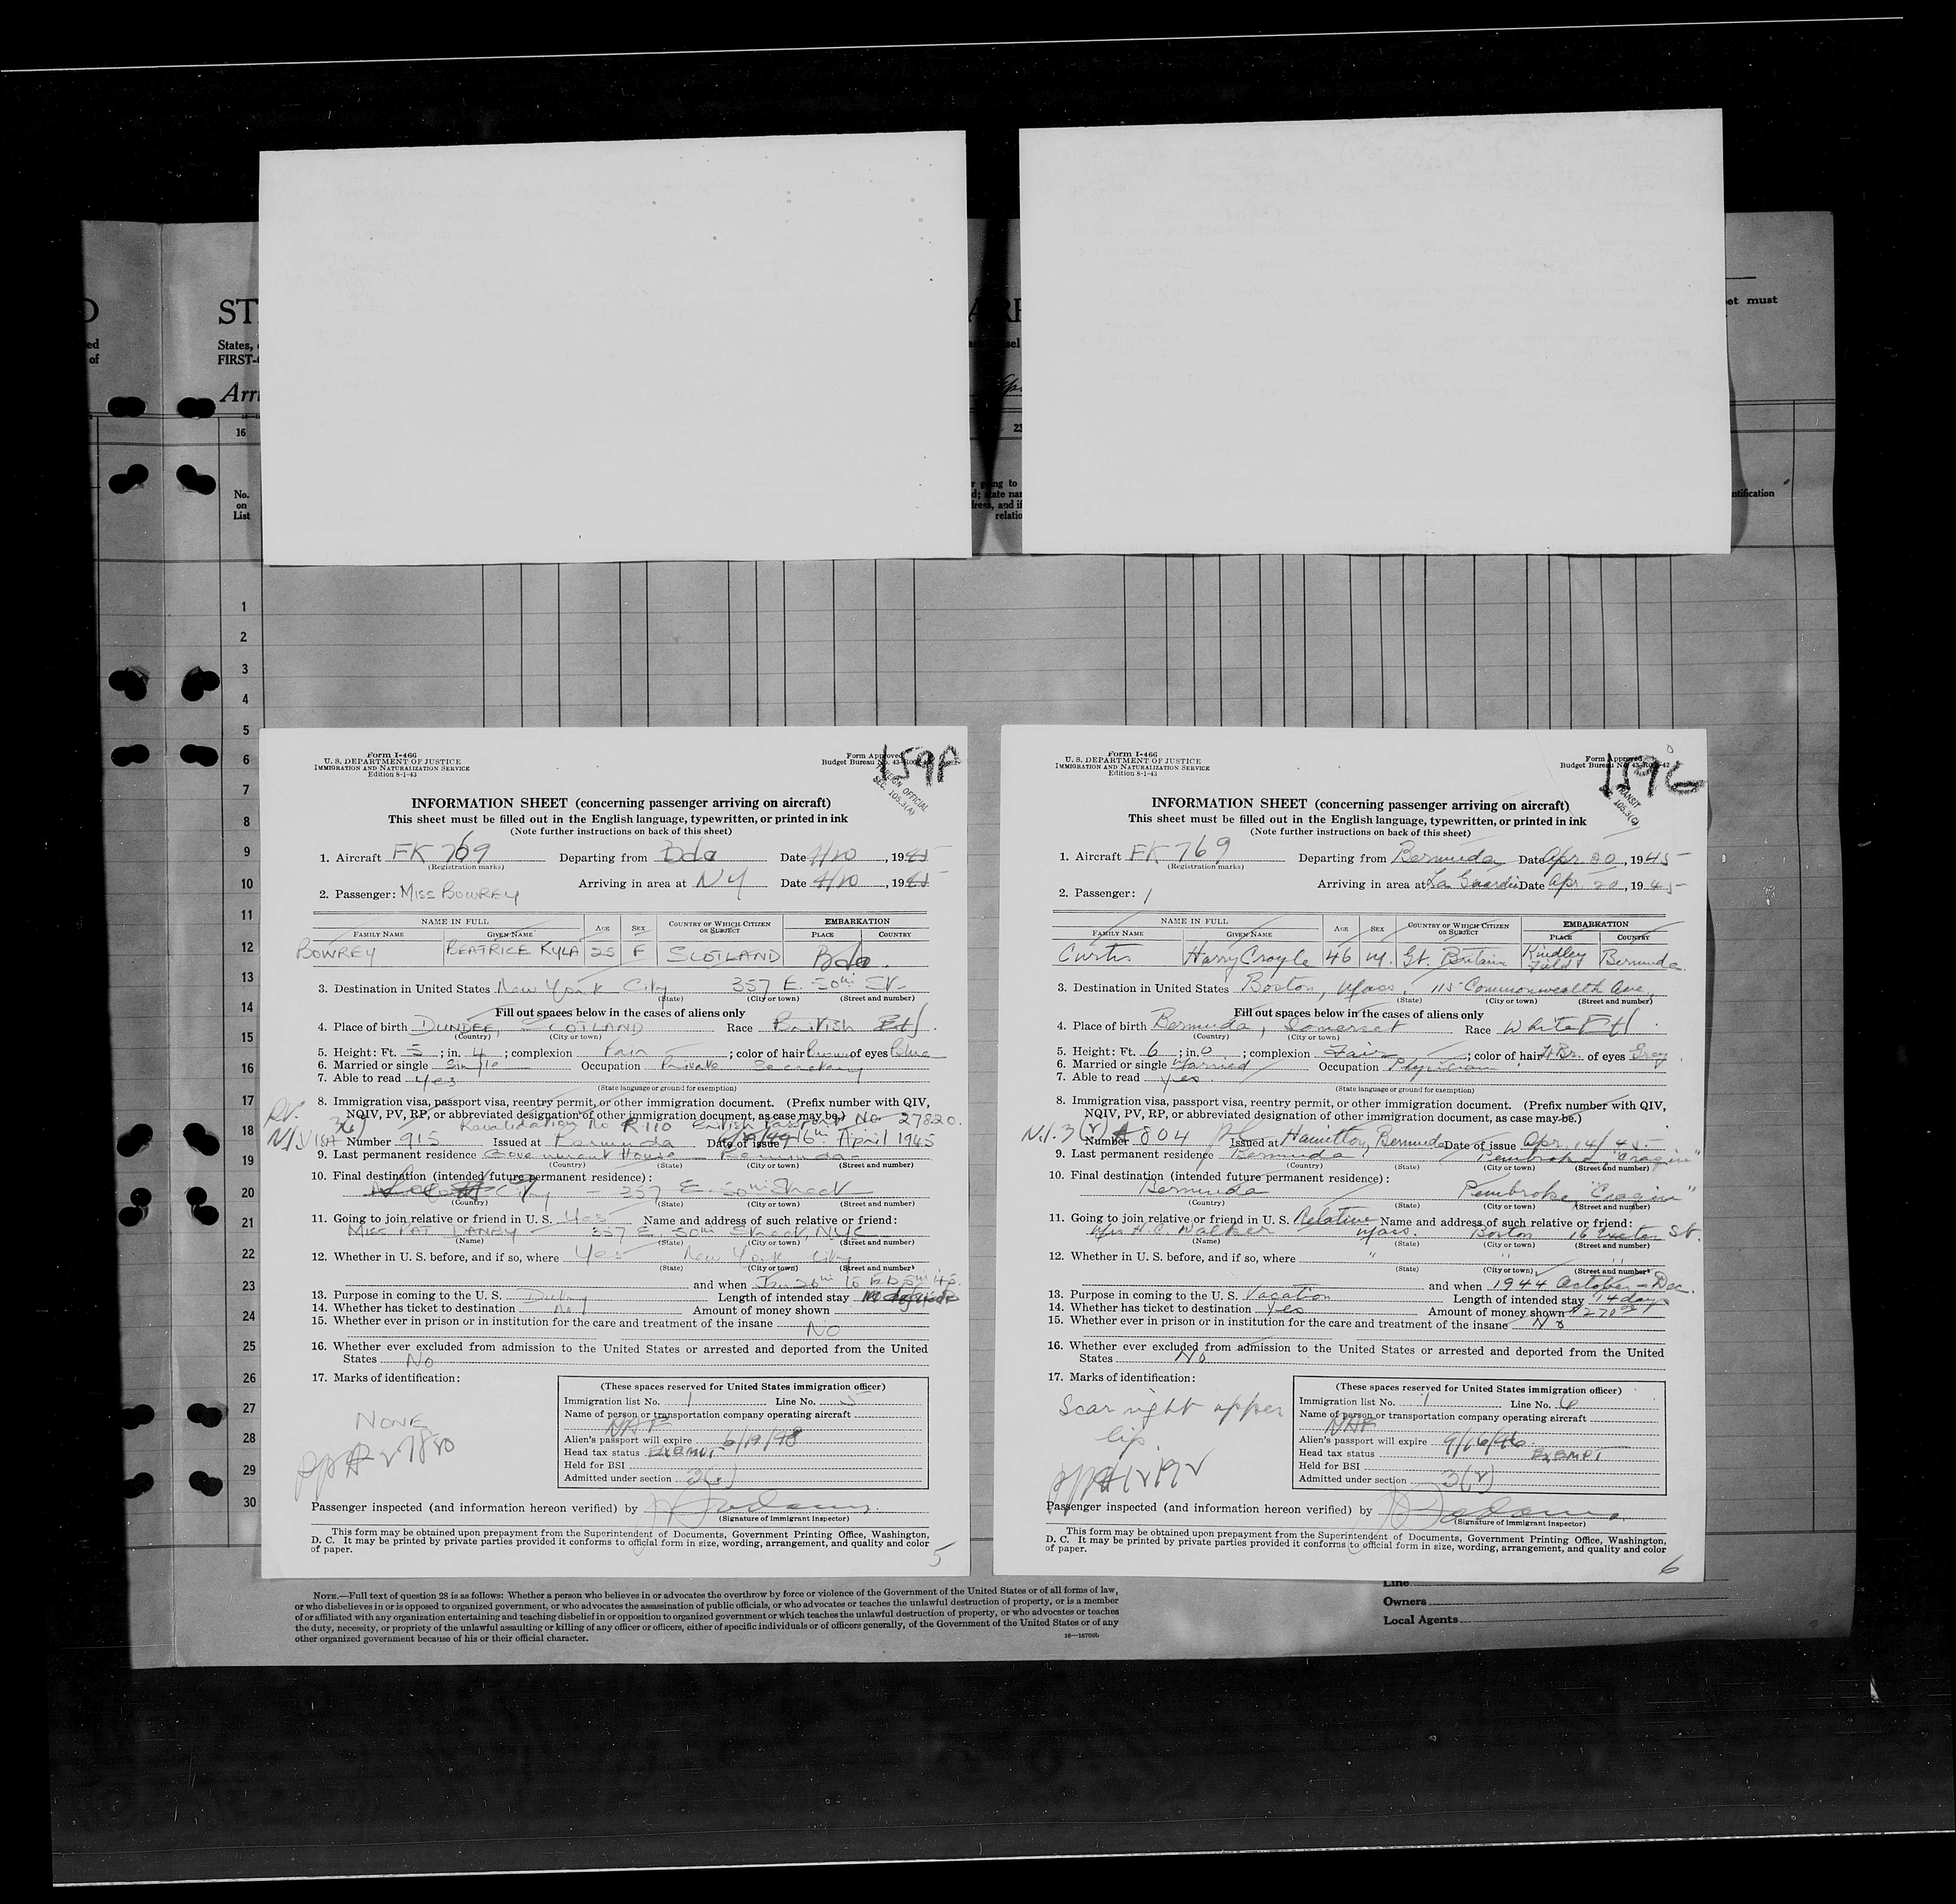 ST
States,
FIRST-
Arri
et must
ed
of
16
23
No.
on
List
r going to
d; state nam
dress, and if
relatio
ntification
1
2
3
4
5
6
7
8
9
10
11
12
13
14
15
16
17
18
19
20
21
22
23
24
25
26
27
28
29
30
Form I-466
U. S. DEPARTMENT OF JUSTICE
IMMIGRATION AND NATURALIZATION SERVICE
Edition 8-1-43
Form Approved
Budget Bureau No. 43-R0
159F
SEC. 105.3(A)
INFORMATION SHEET (concerning passenger arriving on aircraft)
This sheet must be filled out in the English language, typewritten, or printed in ink
(Note further instructions on back of this sheet)
1. Aircraft FK 769 Departing from Bda Date 4/20, 1945
(Registration marks)
Arriving in area at NY Date 4/20, 1945
2. Passenger: MISS BOWREY
NAME IN FULL AGE SEX COUNTRY OF WHICH CITIZEN OR SUBJECT EMBARKATION
FAMILY NAME GIVEN NAME PLACE COUNTRY
BOWREY BEATRICE KYLA 25 F SCOTLAND Bda.
3. Destination in United States New York City 357 E. 50th St.
(State) (City or town) (Street and number)
Fill out spaces below in the cases of aliens only
4. Place of birth DUNDEE, SCOTLAND Race British
(Country) (City or town)
5. Height: Ft. 5; in. 4; complexion Fair; color of hair brown of eyes blue
6. Married or single Single Occupation Private Secretary
7. Able to read yes
(State language or ground for exemption)
8. Immigration visa, passport visa, reentry permit, or other immigration document. (Prefix number with QIV,
NQIV, PV, RP, or abbreviated designation of other immigration document, as case may be.) No 27820.
Revalidation No R110 British Passport
Number 915 Issued at Bermuda Date of issue 16th April 1945
9. Last permanent residence Government House Bermuda
(Country) (State) (City or town) (Street and number)
10. Final destination (intended future permanent residence):
357 E. 50th Street
(Country) (State) (City or town) (Street and number)
11. Going to join relative or friend in U. S. Yes Name and address of such relative or friend:
MISS PAT DANBY 357 E. 50th Street, NYC
(Name) (State) (City or town) (Street and number)
12. Whether in U. S. before, and if so, where Yes New York City
(State) (City or town) (Street and number)
and when Jan 26th to Feb 5th 45.
13. Purpose in coming to the U. S. Duty Length of intended stay
14. Whether has ticket to destination No Amount of money shown
15. Whether ever in prison or in institution for the care and treatment of the insane No
16. Whether ever excluded from admission to the United States or arrested and deported from the United
States No
17. Marks of identification:
NONE
PP# 27820
(These spaces reserved for United States immigration officer)
Immigration list No. 1 Line No. 5
Name of person or transportation company operating aircraft
Alien's passport will expire 6/19/48
Head tax status EXEMPT
Held for BSI
Admitted under section
Passenger inspected (and information hereon verified) by
(Signature of immigrant inspector)
This form may be obtained upon prepayment from the Superintendent of Documents, Government Printing Office, Washington,
D. C. It may be printed by private parties provided it conforms to official form in size, wording, arrangement, and quality and color
of paper.
5
Form I-466
U. S. DEPARTMENT OF JUSTICE
IMMIGRATION AND NATURALIZATION SERVICE
Edition 8-1-43
Form Approved
Budget Bureau No. 43-R0
159G
TRANSIT
105.3(C)
INFORMATION SHEET (concerning passenger arriving on aircraft)
This sheet must be filled out in the English language, typewritten, or printed in ink
(Note further instructions on back of this sheet)
1. Aircraft FK 769 Departing from Bermuda Date Apr. 20, 1945
(Registration marks)
Arriving in area at La Guardia Date Apr. 20, 1945
2. Passenger: 1
NAME IN FULL AGE SEX COUNTRY OF WHICH CITIZEN OR SUBJECT EMBARKATION
FAMILY NAME GIVEN NAME PLACE COUNTRY
Curtis Harry Croyle 46 M. Gt. Britain Kindley Field Bermuda
3. Destination in United States Boston, Mass. 115 Commonwealth Ave.,
(State) (City or town) (Street and number)
Fill out spaces below in the cases of aliens only
4. Place of birth Bermuda, Somerset Race White
(Country) (City or town)
5. Height: Ft. 6; in. 0; complexion Fair; color of hair Lt Br. of eyes Grey
6. Married or single Married Occupation Physician
7. Able to read yes
(State language or ground for exemption)
8. Immigration visa, passport visa, reentry permit, or other immigration document. (Prefix number with QIV,
NQIV, PV, RP, or abbreviated designation of other immigration document, as case may be.)
Number 804 Issued at Hamilton, Bermuda Date of issue Apr. 14/45
9. Last permanent residence Bermuda Pembroke, "Cragin"
(Country) (State) (City or town) (Street and number)
10. Final destination (intended future permanent residence):
Bermuda Pembroke, "Cragin"
(Country) (State) (City or town) (Street and number)
11. Going to join relative or friend in U. S. Relative Name and address of such relative or friend:
H. C. Walker Mass. Boston 16 Exeter St.
(Name) (State) (City or town) (Street and number)
12. Whether in U. S. before, and if so, where " " "
(State) (City or town) (Street and number)
and when 1944 October - Dec.
13. Purpose in coming to the U. S. Vacation Length of intended stay 14 days
14. Whether has ticket to destination Yes Amount of money shown $270
15. Whether ever in prison or in institution for the care and treatment of the insane No
16. Whether ever excluded from admission to the United States or arrested and deported from the United
States No
17. Marks of identification:
Scar right upper
lip
(These spaces reserved for United States immigration officer)
Immigration list No. 1 Line No. 6
Name of person or transportation company operating aircraft
Alien's passport will expire 9/16/46
Head tax status EXEMPT
Held for BSI
Admitted under section 3(2)
Passenger inspected (and information hereon verified) by
(Signature of immigrant inspector)
This form may be obtained upon prepayment from the Superintendent of Documents, Government Printing Office, Washington,
D. C. It may be printed by private parties provided it conforms to official form in size, wording, arrangement, and quality and color
of paper.
6
NOTE.—Full text of question 28 is as follows: Whether a person who believes in or advocates the overthrow by force or violence of the Government of the United States or of all forms of law,
or who disbelieves in or is opposed to organized government, or who advocates the assassination of public officials, or who advocates or teaches the unlawful destruction of property, or is a member
of or affiliated with any organization entertaining and teaching disbelief in or opposition to organized government or which teaches the unlawful destruction of property, or who advocates or teaches
the duty, necessity, or propriety of the unlawful assaulting or killing of any officer or officers, either of specific individuals or of officers generally, of the Government of the United States or of any
other organized government because of his or their official character.
Line
Owners
Local Agents